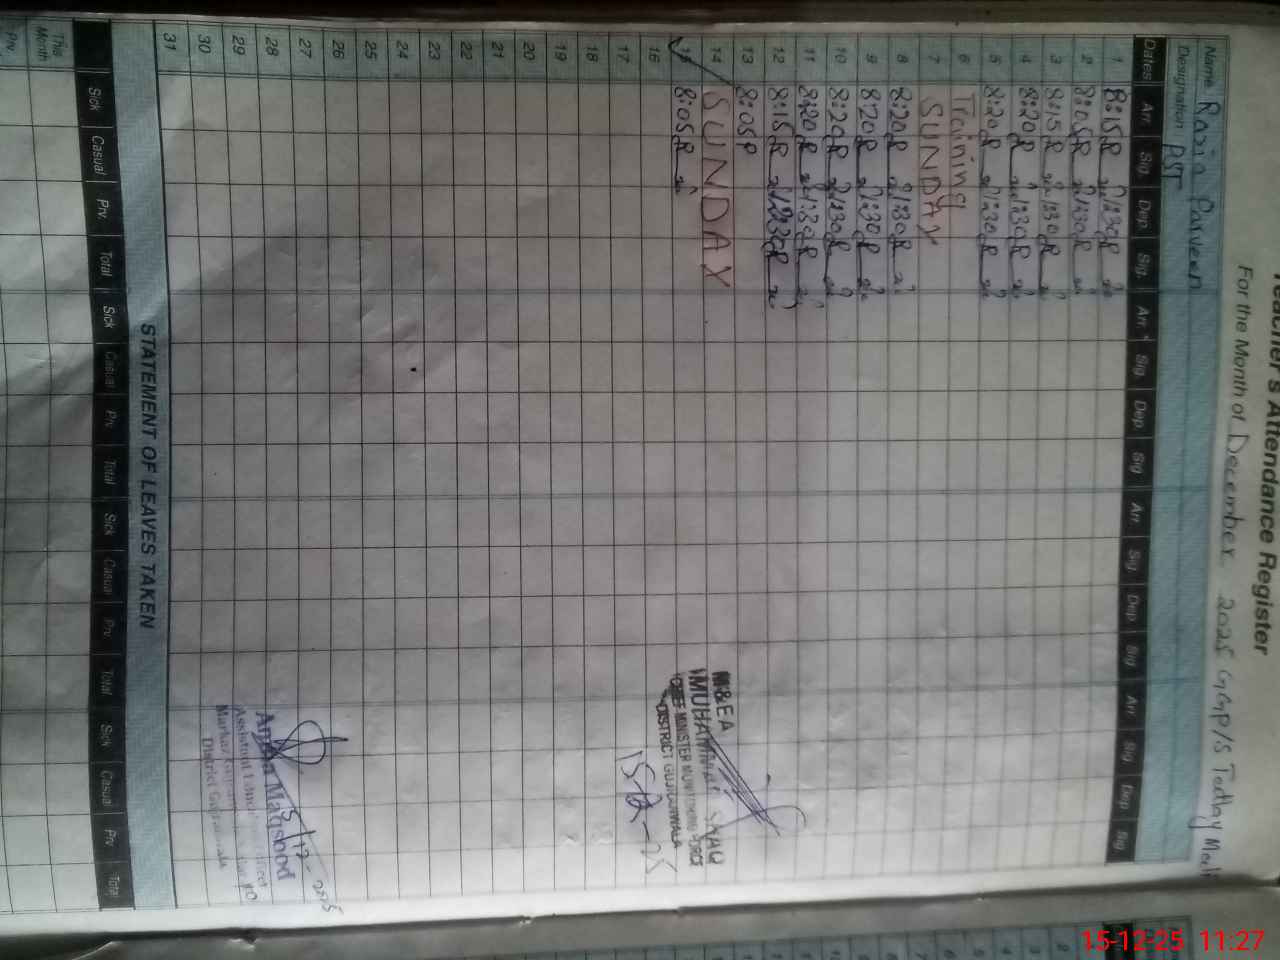 Teacher's Attendance Register
For the Month of December 2025 GGP/S Tedday Mech
Name Razia Parveen
Designation PST
Dates Arr. Sig. Dep. Sig. Arr. Sig. Dep. Sig Arr. Sig Dep Sig Arr Sig Dep Sig
1 8:15 R 1:30 R
2 8:05 R 1:30 R
3 8:15 R 1:30 R
4 8:20 R 1:30 R
5 8:20 R 1:30 R
6 Training
7 SUNDAY
8 8:20 R 1:30 R
9 8:20 R 1:30 R
10 8:20 R 1:30 R
11 8:20 R 1:30 R
12 8:15 R 12:30 R
13 8:05 P
14 SUNDAY
15 8:05 R
16
17
18
19
20
21
22
23
24
25
26
27
28
29
30
31
M&EA
MUHAMMAD
CHIEF MINISTER MONITORING FORCE
DISTRICT GUJRANWALA
15-12-25
5/12-2025
Assistant
Markaz
District
STATEMENT OF LEAVES TAKEN
Sick Casual Prv. Total Sick Casual Prv Total Sick Casual Prv Total Sick Casual Prv Total
This Month
Prv.
15-12-25 11:27